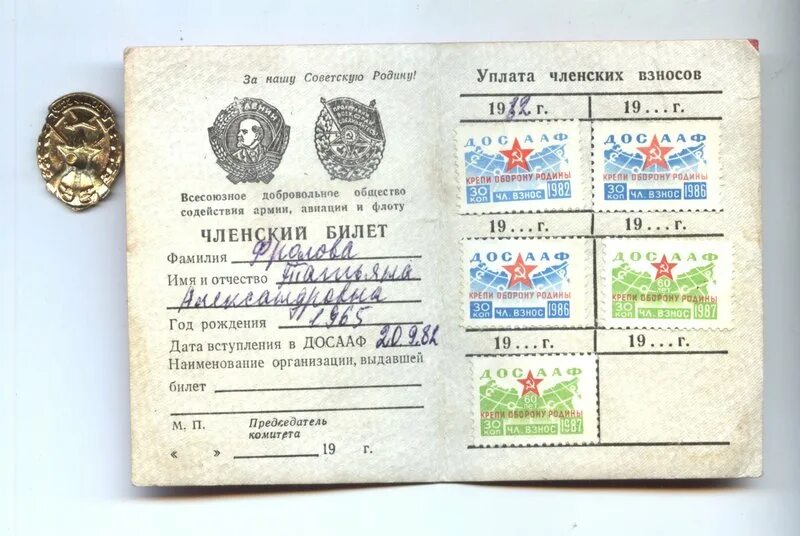 За нашу Советскую Родину!
ЛЕНИН
Всесоюзное добровольное общество
содействия армии, авиации и флоту
ЧЛЕНСКИЙ БИЛЕТ
Фамилия Фролова
Имя и отчество Татьяна
Александровна
Год рождения 1965
Дата вступления в ДОСААФ 20.9.82
Наименование организации, выдавшей
билет
М. П. Председатель
комитета
« » 19 г.
Уплата членских взносов
1982 г. 19...г.
ДОСААФ
КРЕПИ ОБОРОНУ РОДИНЫ
30 КОП ЧЛ. ВЗНОС 1982
ДОСААФ
КРЕПИ ОБОРОНУ РОДИНЫ
30 КОП ЧЛ. ВЗНОС 1986
19...г. 19...г.
ДОСААФ
КРЕПИ ОБОРОНУ РОДИНЫ
30 КОП ЧЛ. ВЗНОС 1986
ДОСААФ
60 ЛЕТ
КРЕПИ ОБОРОНУ РОДИНЫ
30 КОП ЧЛ. ВЗНОС 1987
19...г. 19...г.
ДОСААФ
60 ЛЕТ
КРЕПИ ОБОРОНУ РОДИНЫ
30 КОП ЧЛ. ВЗНОС 1987